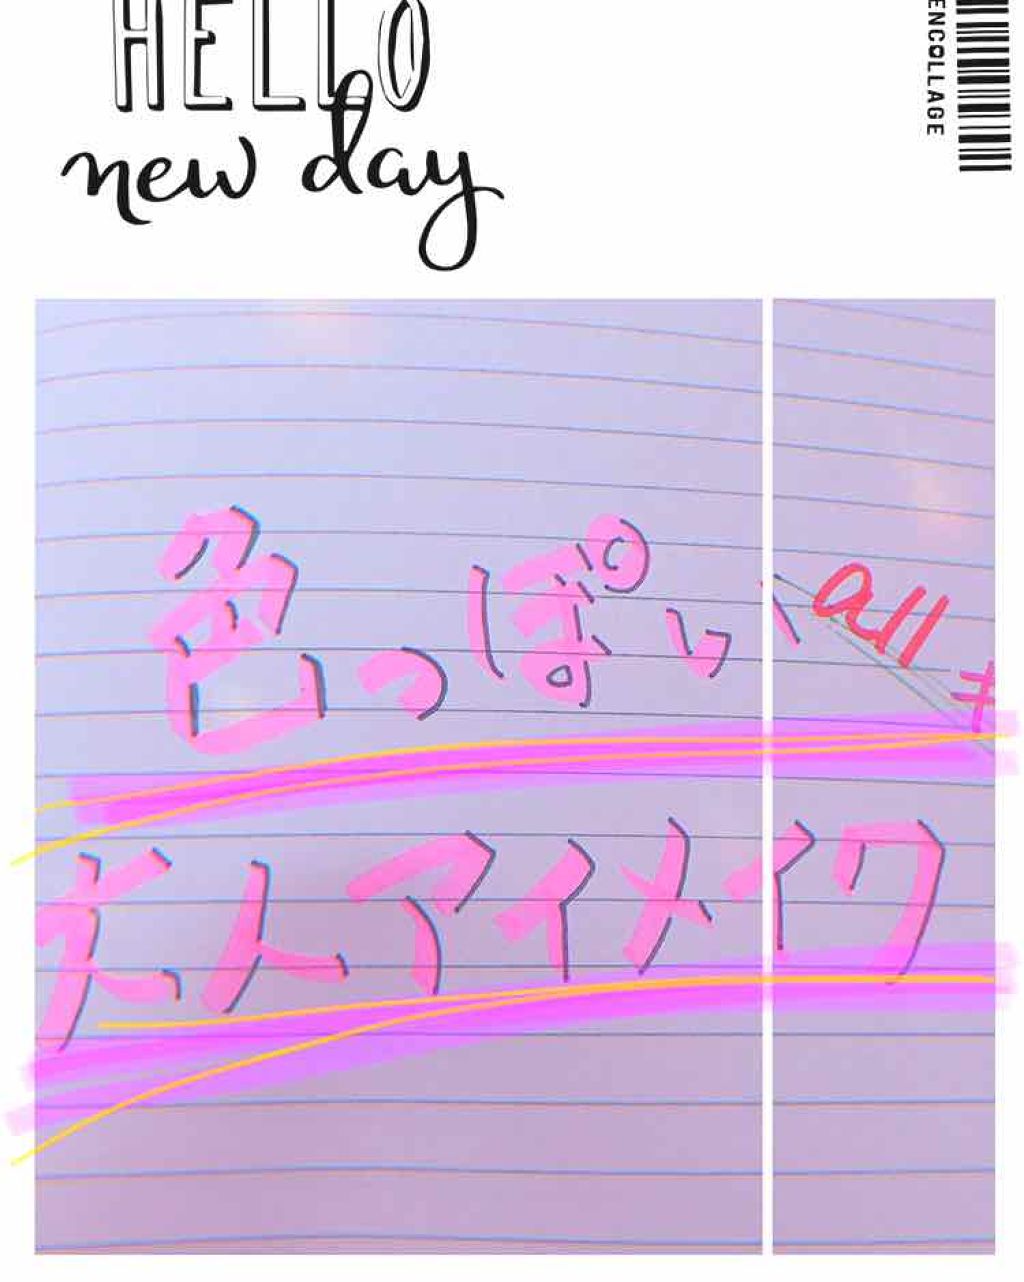 HELLO
new day
ENCOLLAGE
色っぽい
all
大人アイメイク